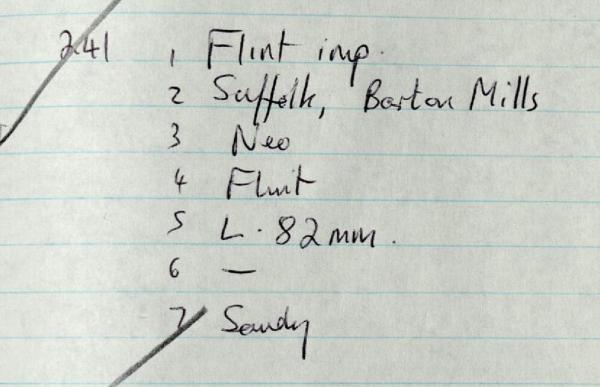 241 1 Flint imp.
2 Suffolk, Barton Mills
3 Neo
4 Flint
5 L. 82mm.
6 —
7 Sandy